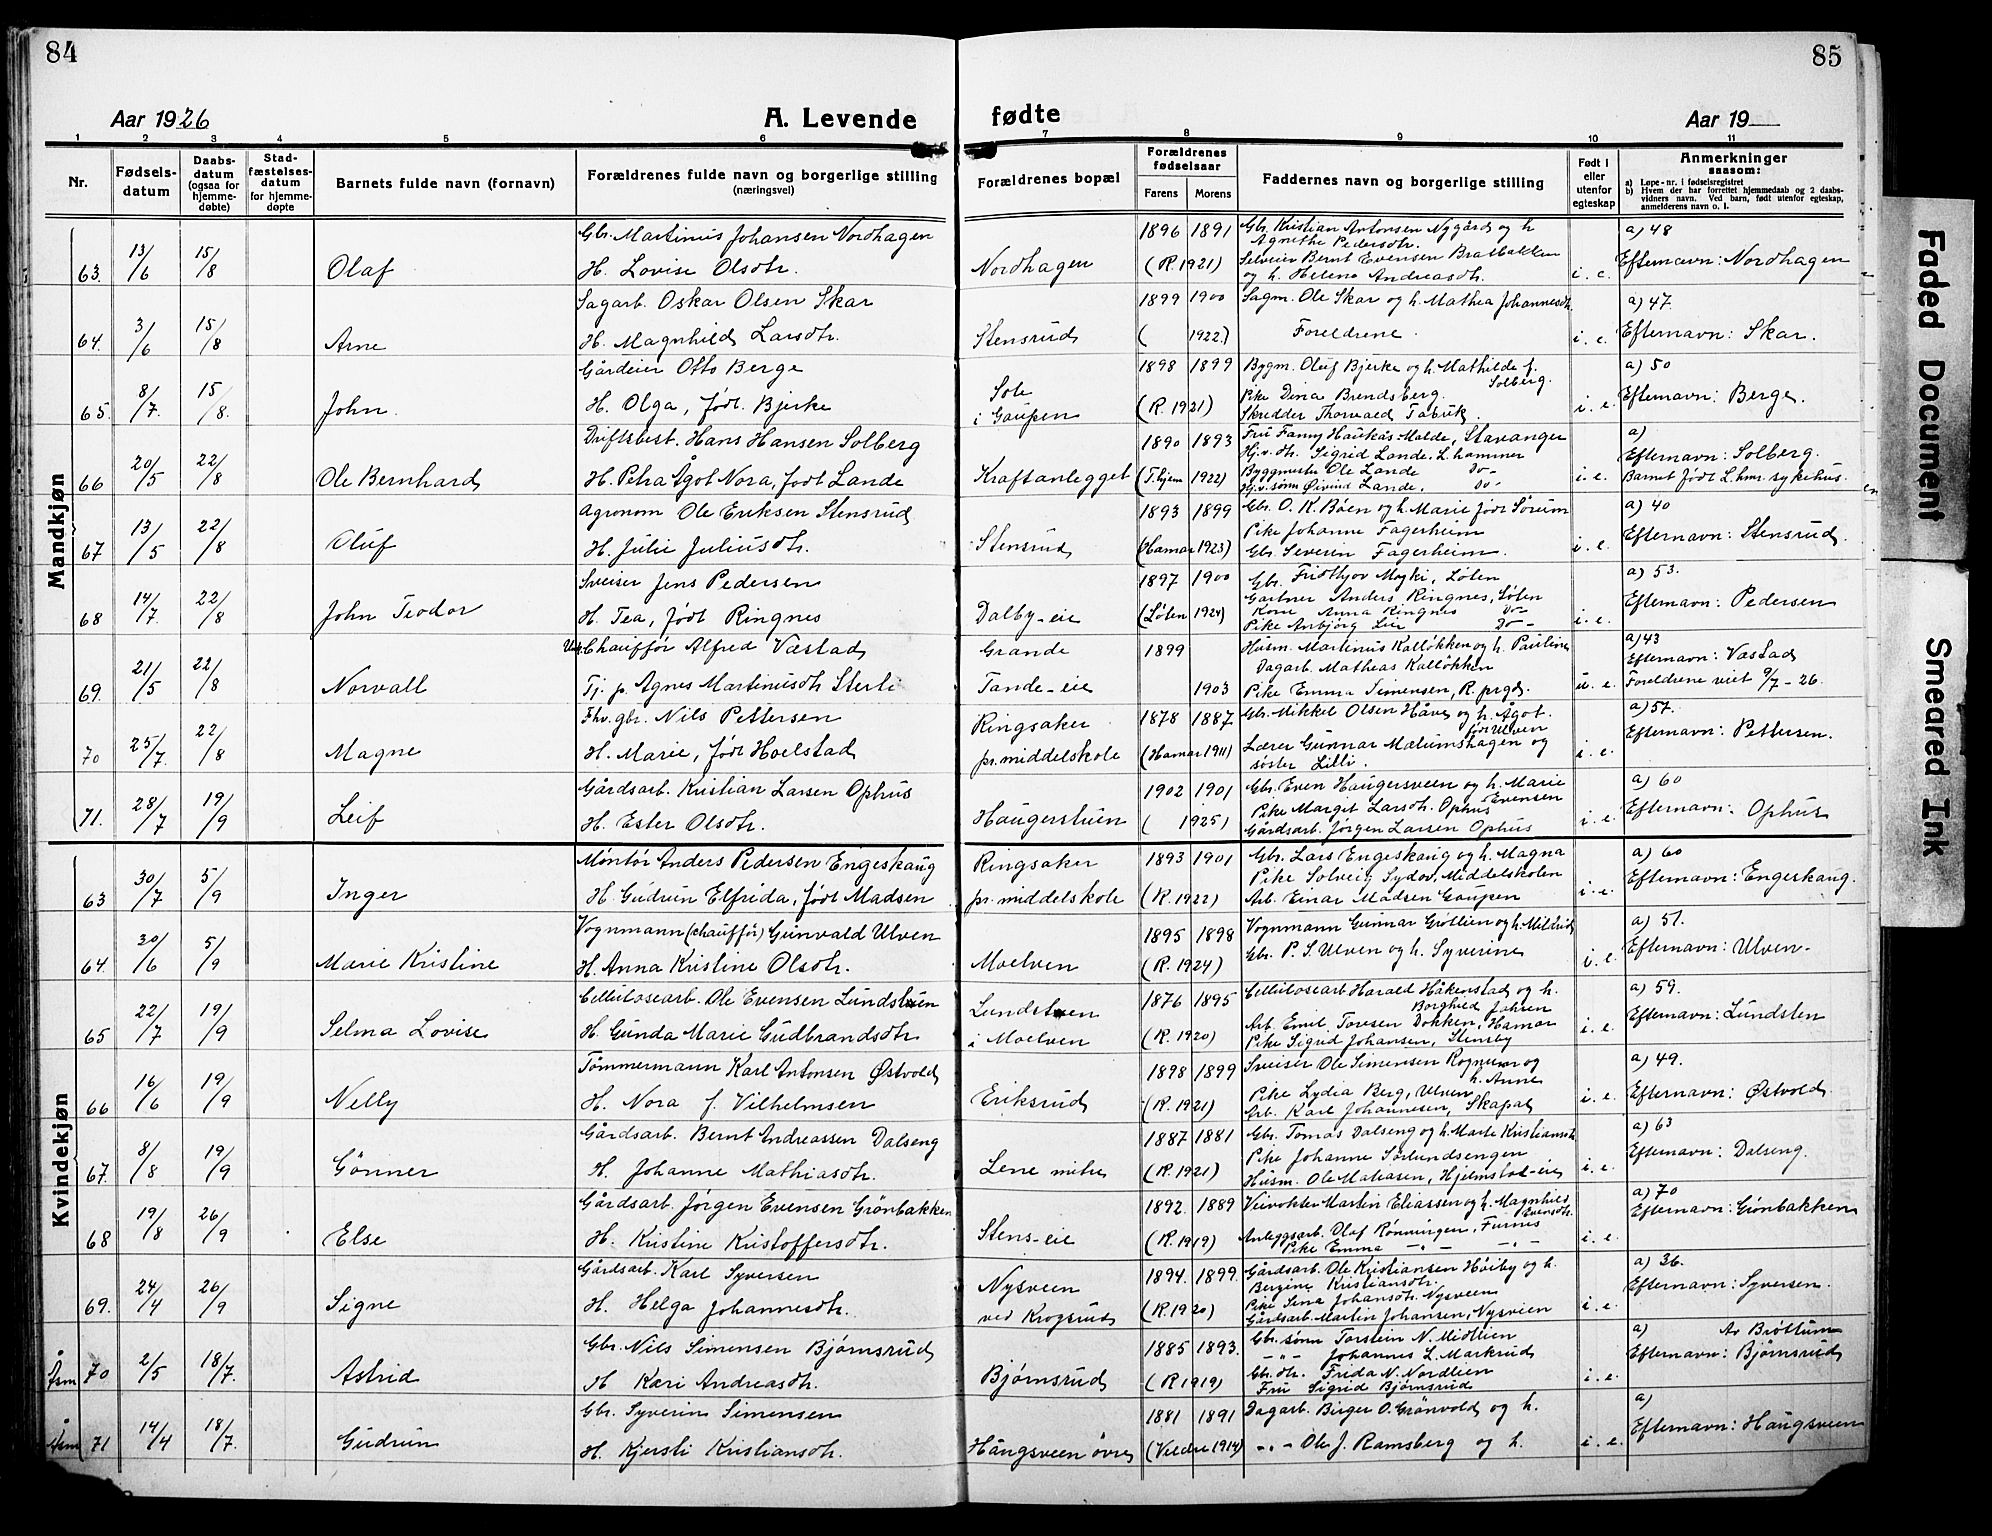 84
Aar 1926
A. Levende
1 2 3 4 5 6
Nr.
Fødsels-
datum
Daabs-
datum
(ogsaa for
hjemme-
døbte)
Stad-
fæstelses-
datum
for hjemme-
døpte
Barnets fulde navn (fornavn)
Forældrenes fulde navn og borgerlige stilling
(næringsvei)
Mandkjøn
Gbr. Martinus Johansen Nordhagen
63. 13/6 15/8 Olaf H. Lovise Olsdtr.
Sagarb. Oskar Olsen Skar
64. 3/6 15/8 Arne H. Magnhild Larsdtr.
Gårdeier Otto Berge
65. 8/7. 15/8. John. H. Olga, født Bjerke
Driftsbest. Hans Hansen Solberg
66 20/5 22/8 Ole Bernhard H. Petra Ågot Nora, født Lande
Agronom Ole Eriksen Stensrud
67 13/5 22/8 Oluf H. Julie Juliusdtr.
Sveiser Jens Pedersen
68 14/7. 22/8 John Teodor H. Tea, født Ringnes
Chauffør Alfred Væstad
69. 21/5 22/8 Norvall Tj. p. Agnes Martinusdtr Sterli
Fhv. gbr. Nils Pettersen
70 25/7. 22/8 Magne H. Marie, født Hoelstad
Gårdsarb. Kristian Larsen Ophus
71. 28/7 19/9 Leif H. Ester Olsdtr.
Kvindekjøn
Montør Anders Pedersen Engeskaug
63 30/7 5/9 Inger H. Gudrun Elfrida, født Madsen
Vognmann (chauffør) Gunvald Ulven
64. 30/6 5/9 Marie Kristine H. Anna Kristine Olsdtr.
Cellulosearb. Ole Evensen Lundstuen
65 22/7 19/9 Selma Lovise H. Gunda Marie Gudbrandsdtr
Tömmermann Karl Antonsen Østvold
66 16/6 19/9 Nelly H. Nora f. Vilhelmsen
Gårdsarb. Bernt Andreassen Dalseng
67. 8/8 19/9 Gönner H. Johanne Mathiasdtr.
Gårdsarb. Jørgen Evensen Grönbakken
68 19/8 26/9 Else H. Kristine Kristoffersdtr.
Gårdsarb. Karl Syversen
69. 24/4 26/9 Signe H. Helga Johannesdtr.
Gbr. Nils Simensen Bjørnsrud
Åsm 70 2/5 18/7. Astrid H Kari Andreasdtr.
Gbr. Syverin Simensen
Åsm 71 14/4 18/7. Gudrun H. Kjersti Kristiansdtr.
85
fødte
Aar 19
7 8 9 10 11
Forældrenes bopæl
Forældrenes
fødselsaar
Farens Morens
Faddernes navn og borgerlige stilling
Født i
eller
utenfor
egteskap
Anmerkninger
saasom:
a) Løpe-nr. i fødselsregistret
b) Hvem der har forrettet hjemmedaab og 2 daabs-
vidners navn. Ved barn, født utenfor egteskap,
anmelderens navn o. l.
1896 1891 Gbr. Kristian Antonsen Nygård og h a) 48
Agnethe Pedersdtr.
Nordhagen (R. 1921) Selveier Bernt Evensen Bratbakken Efternavn: Nordhagen
og h. Helene Andreasdtr. i. e.
1899 1900 Sagm. Ole Skar og h. Mathea Johannesdtr. a) 47.
Stensrud ( 1922.) Foreldrene. i. e. Efternavn: Skar.
1898 1899 Bygm. Oluf Bjerke og h. Mathilde f. Solberg. a) 50
Sole Pike Dina Brendsberg.
i Gaupen (R. 1921) Skredder Thorvald Fabrik. i. e. Efternavn: Berge.
1890 1893 Fru Fanny Haukås-Molde, Stavanger a)
Hj.v. dtr. Sigrid Lande, L.hammer Efternavn: Solberg.
Kraftanlegget (T.hjem 1922) Byggmester Ole Lande do- i. e. Barnet født L.hmr. sykehus.
Hj.v. sønn Øivind Lande, do-
1893 1899 Gbr. O. K. Böen og h. Marie født Sörum a) 40
Pike Johanne Fagerheim
Stensrud (Hamar 1923) Gbr. Severin Fagerheim. i. e. Efternavn: Stensrud.
1897 1900 Gbr. Fridthjov Myki, Løten a) 53.
Gartner Anders Ringnes, Løten
Dalby-eie (Løten 1924) Kone Anna Ringnes do- i. e. Efternavn: Pedersen
Pike Anbjørg Lier do-
Grande 1899 Husm. Martinus Kalløkken og h. Pauline a) 43
Dagarb. Mathias Kalløkken Efternavn: Væstad
Tande-eie 1903 Pike Emma Simensen, R. prgd. u. e. Foreldrene viet 9/7-26.
Ringsaker 1878 1887 Gbr. Mikkel Olsen Håve og h. Ågot. født Ulven a) 57.
pr. middelskole (Hamar 1911) Lærer Gunnar Mælumshagen og i. e. Efternavn: Pettersen.
søster Lilli.
1902 1901 Gbr. Even Haugersveen og h. Marie Evensen a) 60
Pike Margit Larsdtr. Ophus
Haugerstuen ( 1925) Gårdsarb. Jørgen Larsen Ophus i. e. Efternavn: Ophus
Ringsaker 1893 1901 Gbr. Lars Engeskaug og h. Magna a) 60
Pike Solveig Sydov, Middelskolen
pr. middelskole (R. 1922) Arb. Einar Madsen Gaupen i. e. Efternavn: Engeskaug.
1895 1898 Vognmann Gunnar Grøtlien og h. Mildrid a) 51.
Moelven (R. 1924) Gbr. P. S. Ulven og h. Syverine i. e. Efternavn: Ulven-
1876 1895 Cellulosearb Harald Håkenstad og h. Borghild Johren a) 59.
Lundstuen Arb. Emil Toresen Dokken, Hamar
i Moelven (R. 1920) Pike Sigrid Johansen, Stensby i. e. Efternavn: Lundsten
1898 1899 Sveiser Ole Simensen Rognum og h. Anne a) 49.
Pike Lydia Berg, Ulven
Eriksrud (R. 1921) Arb. Karl Johannesen, Skapal i. e. Efternavn: Østvold
1887 1881 Gbr. Tomas Dalseng og h. Marte Kristiansdtr a) 63
Pike Johanne Sørlundsengen
Lene mitre (R. 1921) Husm. Ole Matiasen, Hjelmstad-eie i. e. Efternavn: Dalseng.
1892. 1889 Veivokter Martin Eliassen og h. Magnhild Evensdtr. a) 70
Stens-eie (R. 1919) Anleggsarb. Olaf Rønningen, Furnes i. e. Efternavn: Grönbakken
Pike Emma -"- -"-
1894. 1899. Gårdsarb. Ole Kristiansen Høiby og h. a) 36.
Nysveen Bergine Kristiansdtr.
ved Krogsrud (R. 1920) Pike Sina Johansdtr. Nysveen i. e. Efternavn: Syversen.
Gårdsarb. Martin Johansen, Nysvien
1885 1893. Gbr. sønn Torstein N. Midtlien a) Av Brøttum
-"- Johannes L. Markrud Efternavn: Bjørnsrud
Bjørnsrud (R 1919) Gbr. dtr. Frida N. Nordlien i. e.
Fru Sigrid Bjørnsrud
1881 1891 Dagarb. Birger O. Grönvold og h. a)
Haugsveen øvre (Veldre 1914) -"- Ole J. Ramsberg og h. i. e. Efternavn: Haugsveen
Faded Document
Smeared Ink